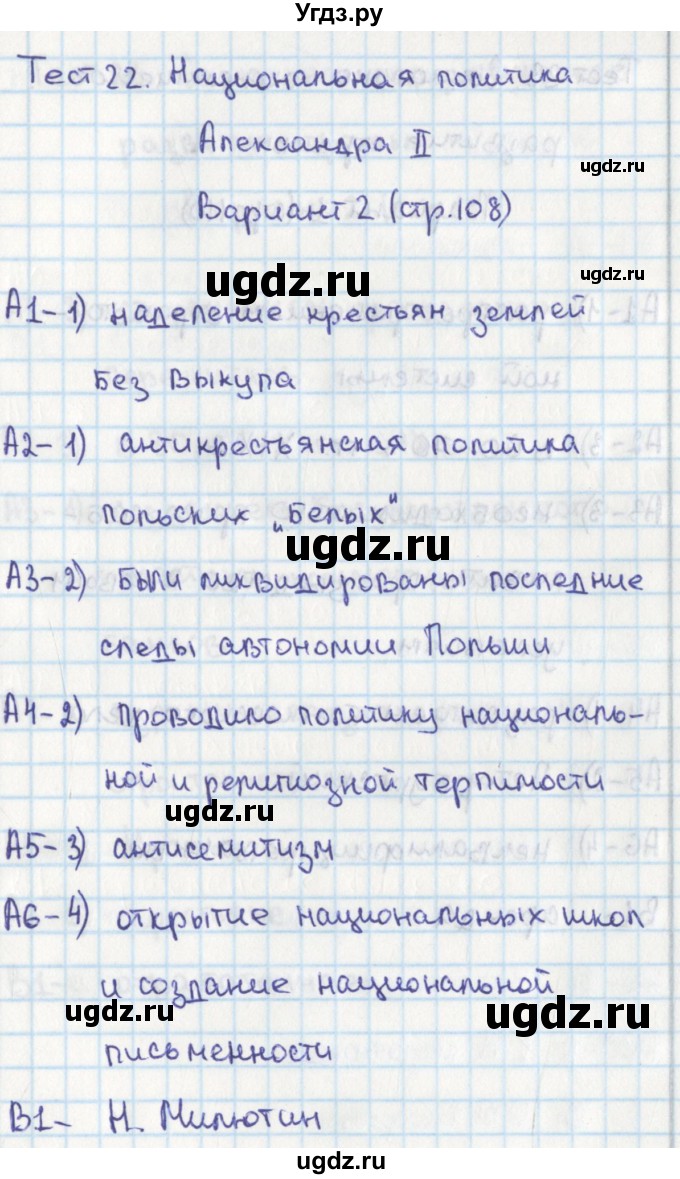 Угдз.ру
Тест 22. Национальная политика
Александра II
ugdz.ru
Вариант 2 (стр.108)
ugdz.ru
ugdz.ru
А1-1) наделение крестьян землей
без выкупа
А2-1) антикрестьянская политика
польских „белых"
ugdz.ru
А3-2) были ликвидированы последние
следы автономии Польши
А4-2) проводило политику националь-
ной и религиозной терпимости
ugdz.ru
А5-3) антисемитизм
А6-4) открытие национальных школ
и создание национальной
ugdz.ru
ugdz.ru
письменности
В1- Н. Милютин
ugdz.ru